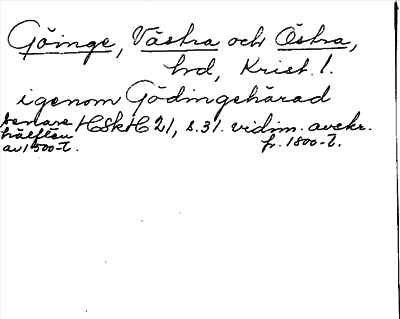 Göinge, Västra och Östra,
hrd, Krist. l.
igenom Gödingehärad
senare hälften av 1500-t. HSkH 21, s. 31. vidim. avskr. fr. 1800-t.